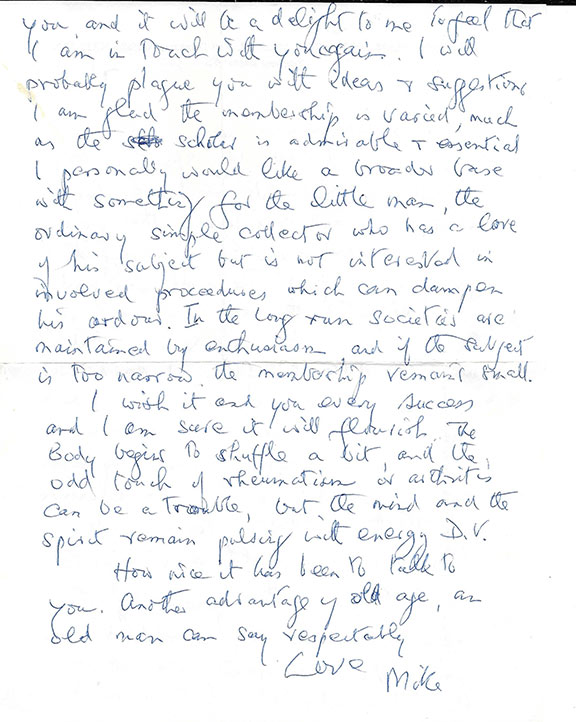 you, and it will be a delight to me to feel that
I am in touch with you again. I will
probably plague you with ideas & suggestions
I am glad the membership is varied, much
as the scholar is admirable & essential
I personally would like a broader base
with something for the little man, the
ordinary simple collector who has a love
of his subject but is not interested in
involved procedures which can dampen
his ardour. In the long run societies are
maintained by enthusiasm and if the subject
is too narrow, the membership remains small.
I wish it and you every success
and I am sure it will flourish. The
Body begins to shuffle a bit, and the
odd touch of rheumatism or arthritis
can be a trouble, but the mind and the
spirit remain pulsing with energy D.V.
How nice it has been to talk to
you. Another advantage of old age, an
old man can say respectably
Love
Mike